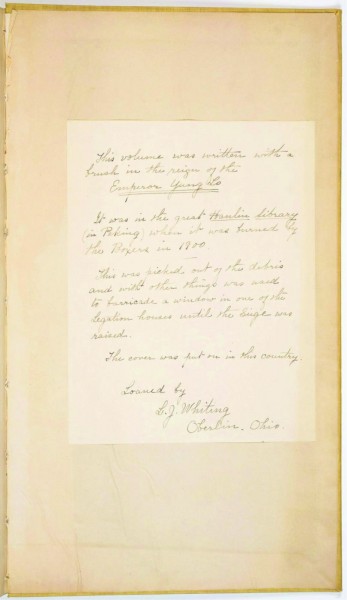 This volume was written with a
brush in the reign of the
Emperor Yung Lo
It was in the great Hanlin library
(in Peking) when it was burned by
the Boxers in 1900.
This was picked out of the debris
and with other things was used
to barricade a window in one of the
legation houses until the siege was
raised.
The cover was put on in this country.
Loaned by
L.J. Whiting
Oberlin, Ohio.